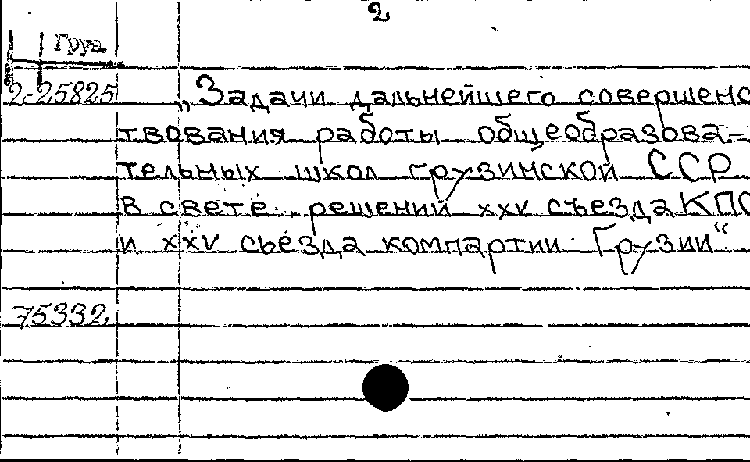 2
Груз
2-25825 „Задачи дальнейшего совершенс
твования работы общеобразова-
тельных школ грузинской ССР
в свете решений XXV съезда КПС
и XXV съезда компартии Грузии“
75332